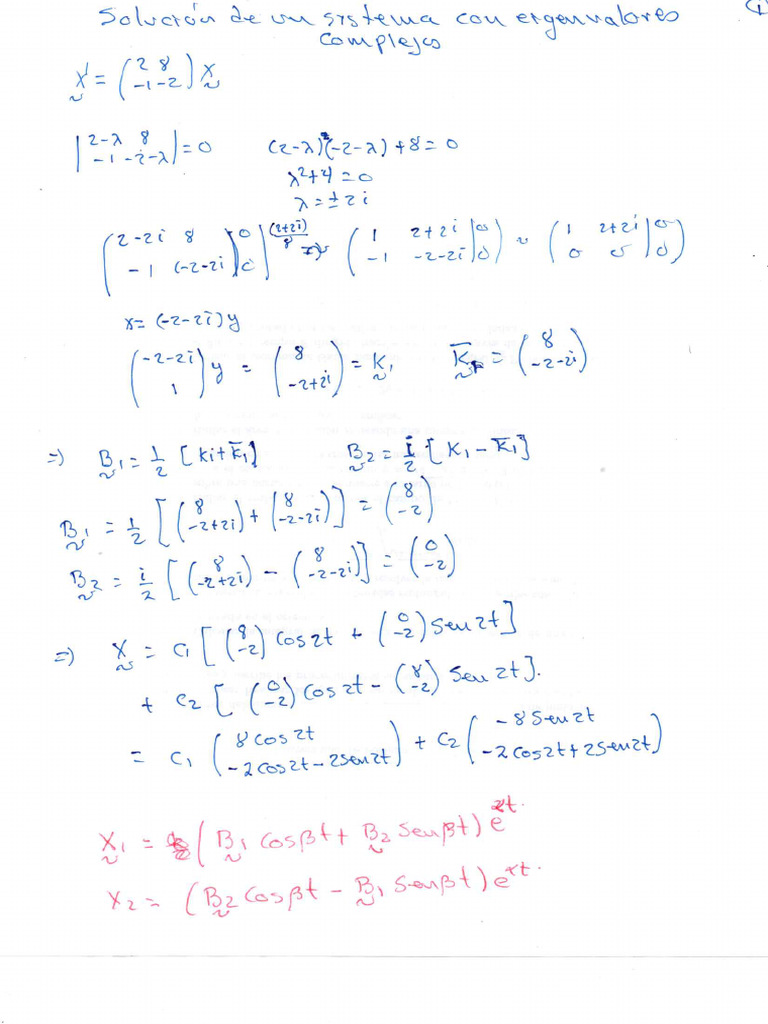 Solución de un sistema con eigenvalores
complejos
X' = (2 8 / -1 -2) X
|2-λ 8 / -1 -2-λ| = 0    (2-λ)(-2-λ) + 8 = 0
λ² + 4 = 0
λ = ± 2i
(2-2i 8 | 0 / -1 (-2-2i) | 0) (2+2i)/8 ⇒ (1 2+2i | 0 / -1 -2-2i | 0) ~ (1 2+2i | 0 / 0 0 | 0)
x = (-2-2i) y
(-2-2i / 1) y = (8 / -2+2i) = K₁    K̄₁ = (8 / -2-2i)
⇒ B₁ = 1/2 [K₁ + K̄₁]    B₂ = i/2 [K₁ - K̄₁]
B₁ = 1/2 [(8 / -2+2i) + (8 / -2-2i)] = (8 / -2)
B₂ = i/2 [(8 / -2+2i) - (8 / -2-2i)] = (0 / -2)
⇒ X = c₁ [(8 / -2) cos 2t + (0 / -2) sen 2t]
+ c₂ [(0 / -2) cos 2t - (8 / -2) sen 2t].
= c₁ (8 cos 2t / -2 cos 2t - 2 sen 2t) + c₂ (-8 sen 2t / -2 cos 2t + 2 sen 2t)
X₁ = (B₁ cos βt + B₂ sen βt) e^αt.
X₂ = (B₂ cos βt - B₁ sen βt) e^αt.